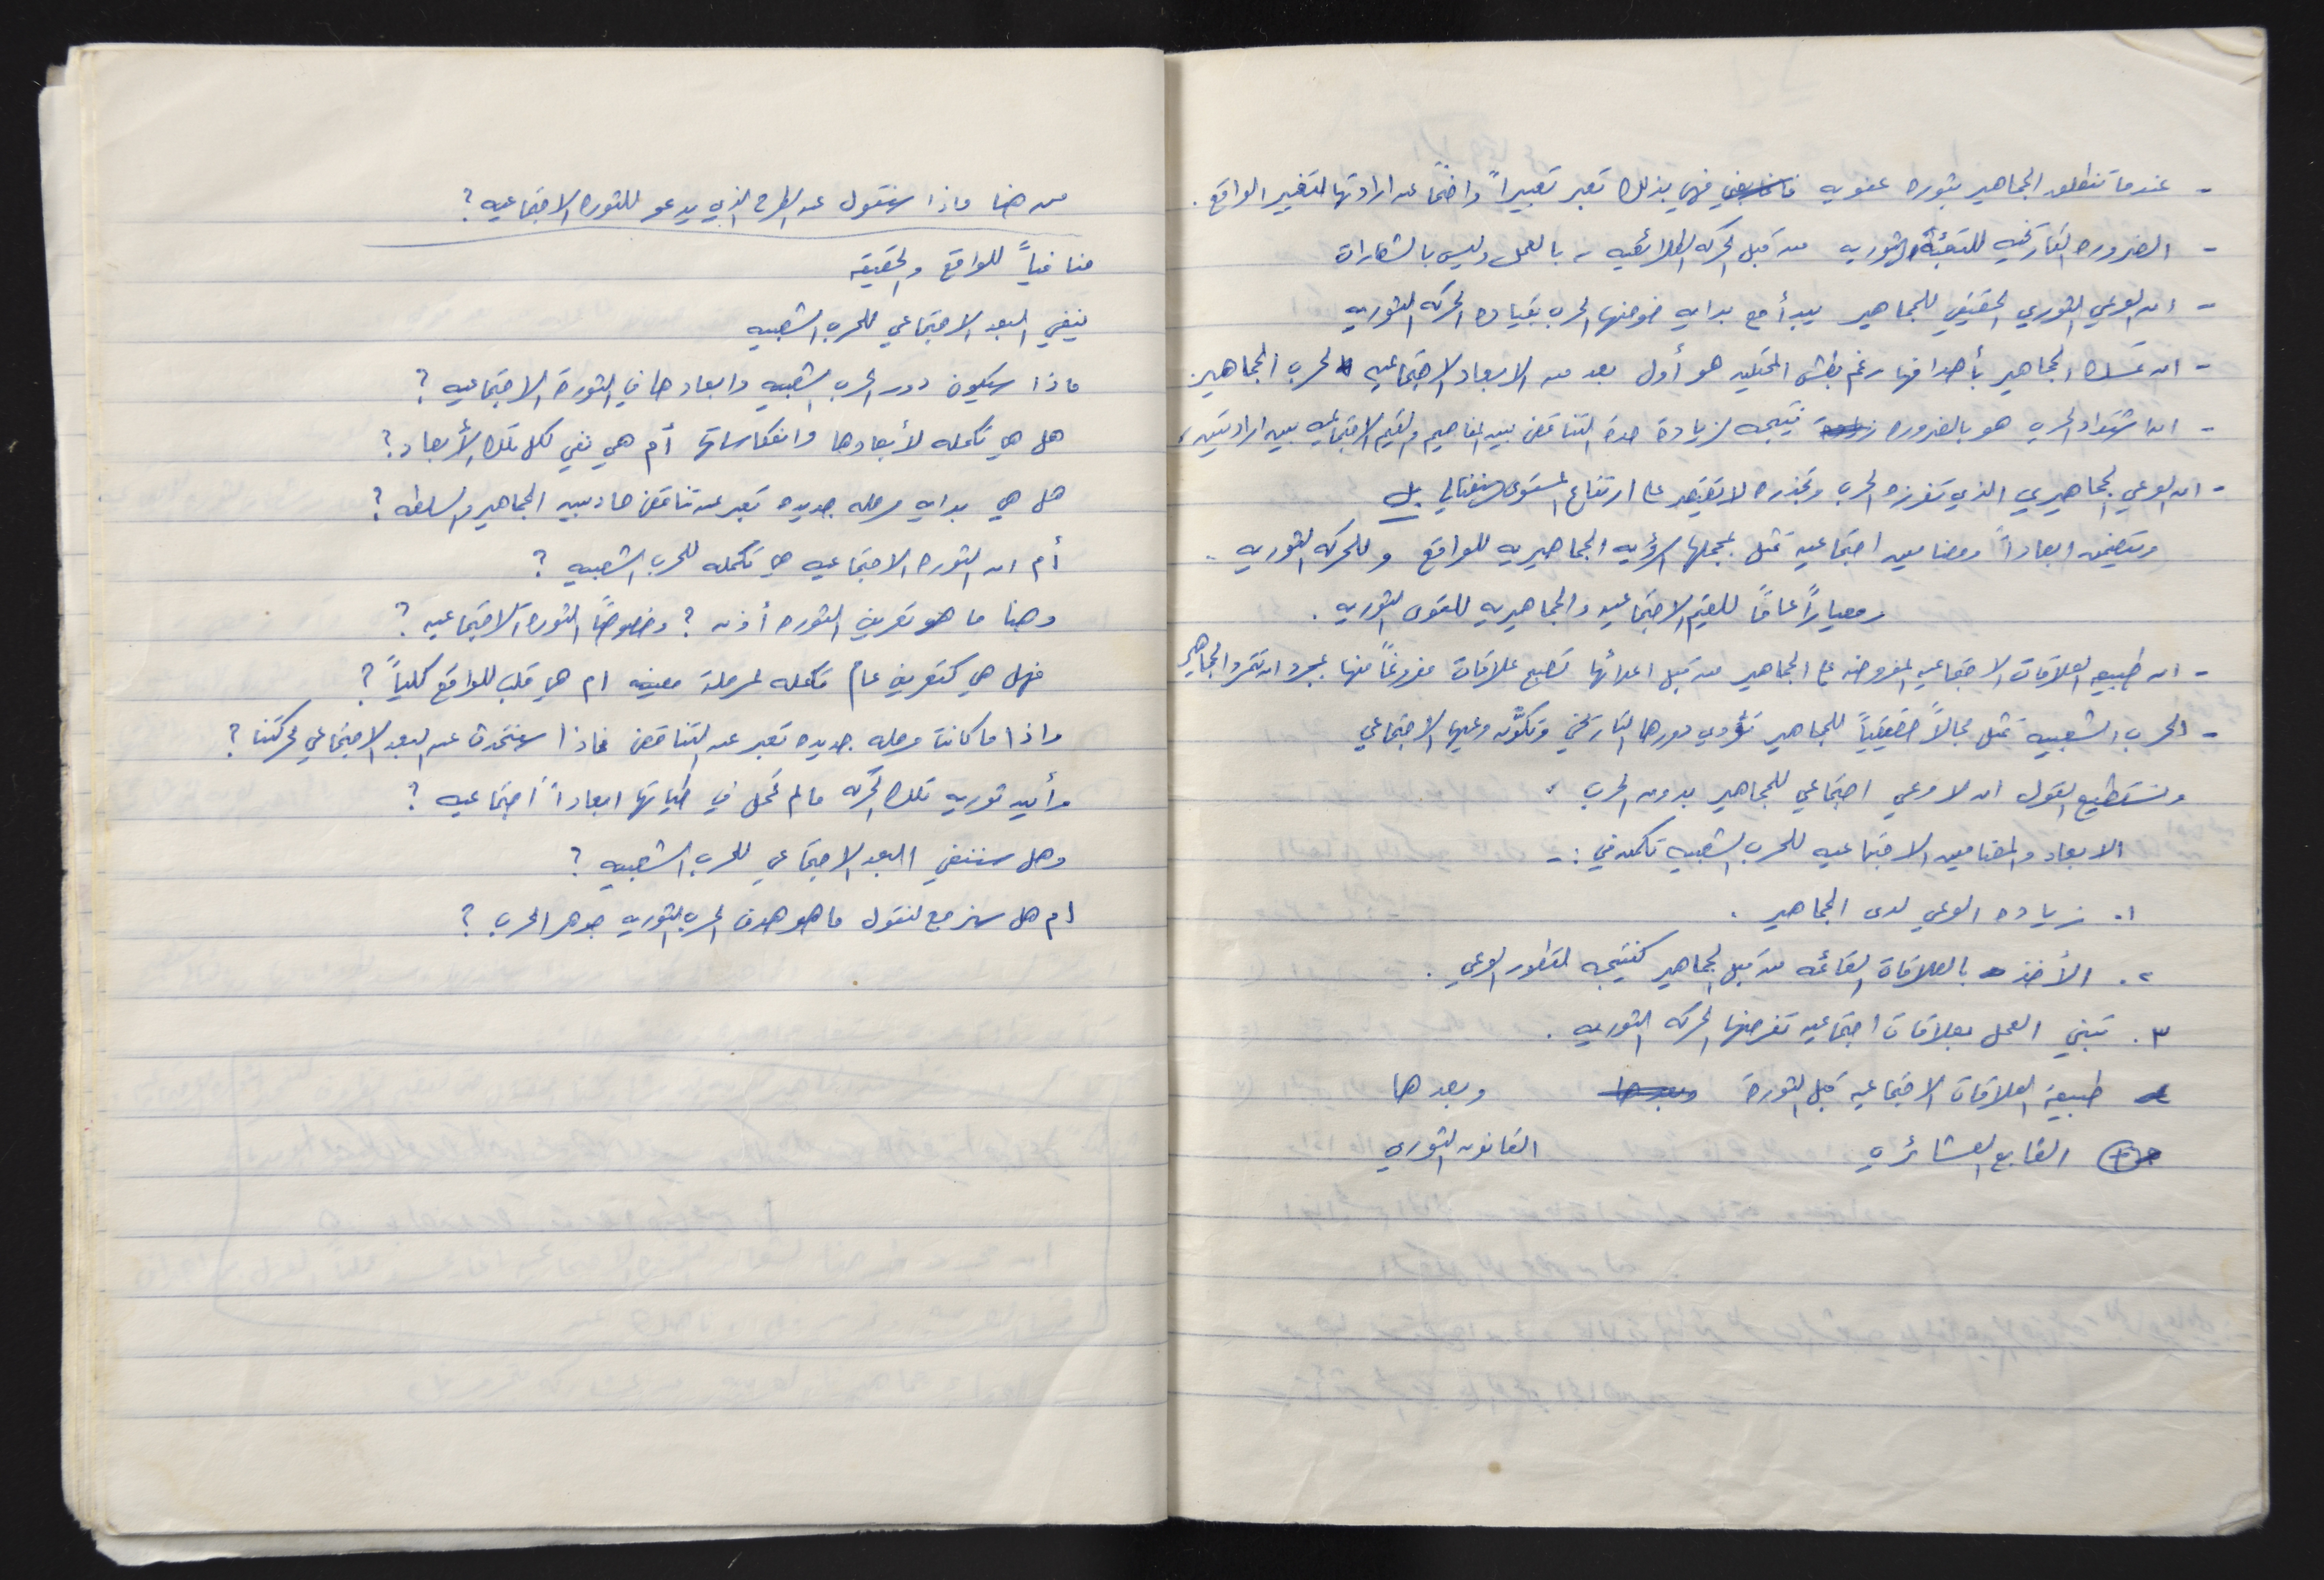 - عندما تنطلق الجماهير بثوره عفويه فهي بذلك تعبر تعبيراً واضحاً عن ارادتها لتغيير الواقع .
- الضروره التاريخيه للتعبئة الثوريه من قبل الحركه الطلائعيه ، بالعمل وليس بالشعارات
- ان الوعي الثوري الحقيقي للجماهير يبدأ مع بدايه خوضها الحرب بقيادة الحركه الثوريه
- ان تمسك الجماهير بأهدافها رغم بطش المحتلين هو أول بعد من الابعاد الاجتماعيه لحرب الجماهير .
- ان اشتداد الحرب هو بالضروره نتيجه لزيادة حدة التناقض بين المفاهيم والقيم الاجتماعيه بين ارادتين ،
- ان الوعي الجماهيري الذي تفرزه الحرب وتجذره لا يقتصر على ارتفاع المستوى النضالي بل
ويتضمن ابعاداً ومضامين اجتماعيه تمثل بمجملها الرؤيه الجماهيريه للواقع وللحركه الثوريه ..
ومعياراً عاماً للقيم الاجتماعيه والجماهيريه للقوى الثوريه .
- ان طبيعه العلاقات الاجتماعيه المفروضه على الجماهير من قبل اعدائها تصبح علاقات مفروغاً منها بمجرد ان تتمرد الجماهير
- الحرب الشعبيه تمثل مجالاً حقيقياً للجماهير تؤدي دورها التاريخي وتكوّن وعيها الاجتماعي
ونستطيع القول ان لا وعي اجتماعي للجماهير بدون الحرب ،
الابعاد والمضامين الاجتماعيه للحرب الشعبيه تكمن في :-
١. زياده الوعي لدى الجماهير .
٢. الأخذ بالعلاقات القائمه من قبل الجماهير كنتيجه لتطور الوعي .
٣. تبني العمل بعلاقات اجتماعيه تفرضها الحركه الثوريه .
طبيعة العلاقات الاجتماعيه قبل الثورة وبعدها
العشائري القانون الثوري
من هنا ماذا سنقول عن الطرح الذي يدعو للثوره الاجتماعيه ؟
منافياً للواقع والحقيقه
ينفي البعد الاجتماعي للحرب الشعبيه
ماذا سيكون دور الحرب الشعبيه وابعادها في الثورة الاجتماعيه ؟
هل هي تكمله لأبعادها وانعكاساتها أم هي نفي لكل تلك الأبعاد ؟
هل هي بدايه مرحله جديده تعبر عن تناقض حاد بين الجماهير والسلطه ؟
أم ان الثوره الاجتماعيه هي تكمله للحرب الشعبيه ؟
وهنا ما هو تعريف الثوره أذن ؟ وخصوصاً الثورة الاجتماعيه ؟
فهل هي كتعريف عام تكمله لمرحلة معينه ام هي قلب للواقع كلياً ؟
واذا ما كانت مرحله جديده تعبر عن التناقض فماذا سنتحدث عن البعد الاجتماعي لحركتنا ؟
وأين ثوريه تلك الحركه مالم تحمل في طياتها ابعاداً اجتماعيه ؟
وهل سننفي البعد الاجتماعي للحرب الشعبيه ؟
ام هل سنرجع لنقول ما هو هدف الحرب الثوريه جوهر الحرب ؟